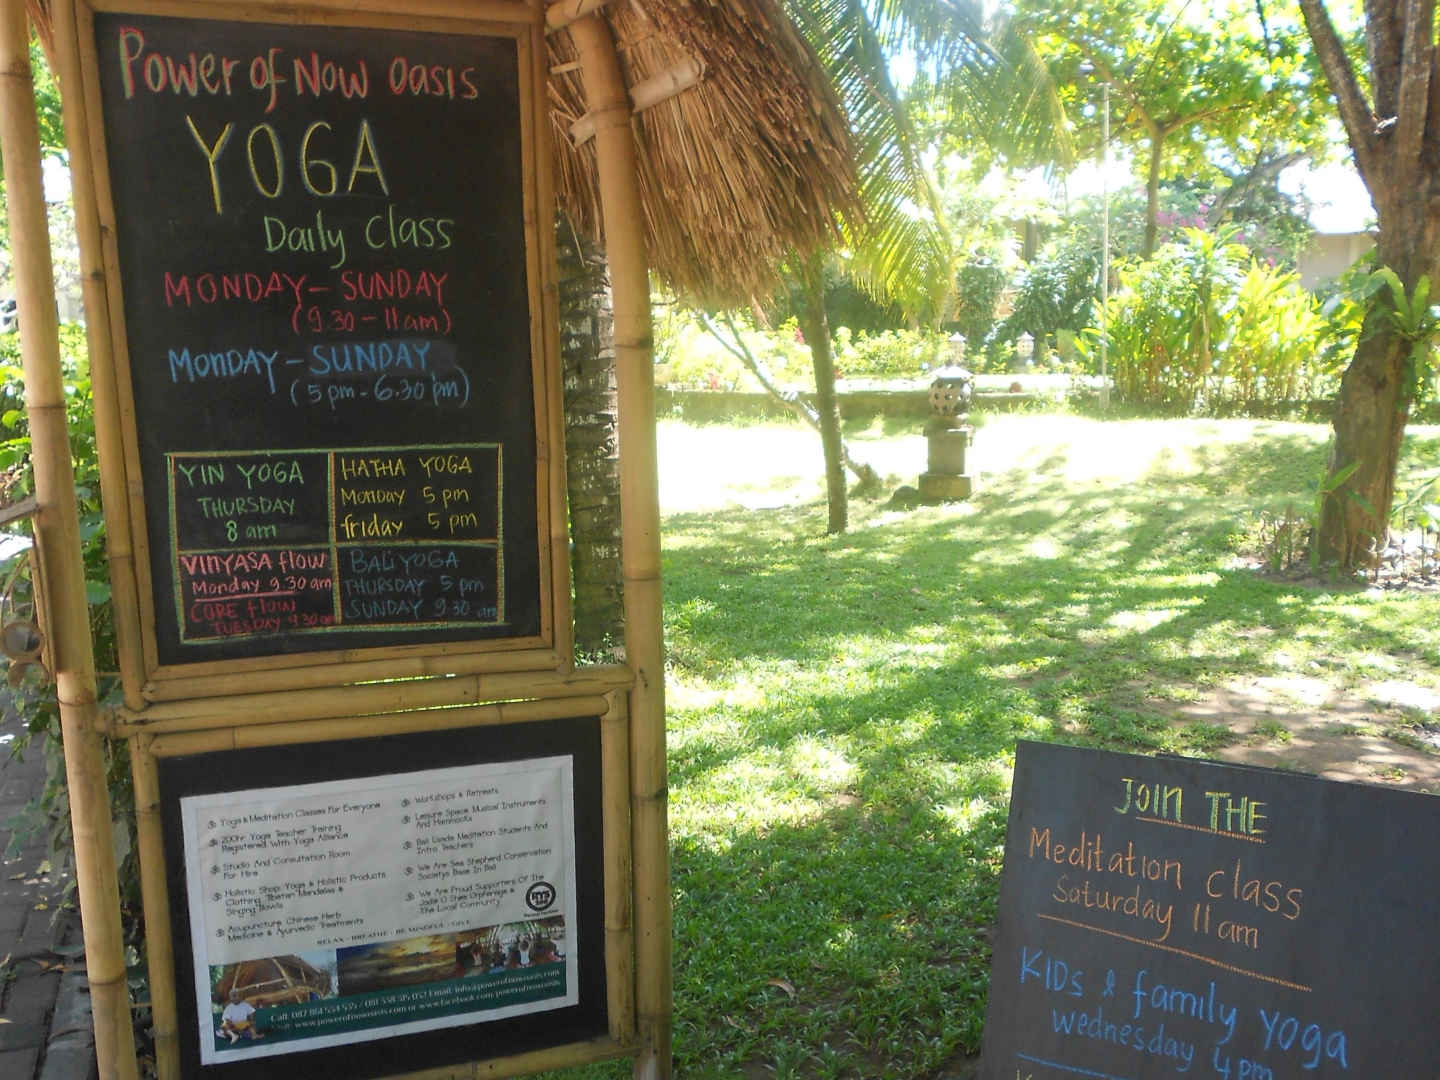 Power of Now Oasis
YOGA
Daily Class
MONDAY - SUNDAY
(9.30 - 11am)
MONDAY - SUNDAY
(5pm - 6.30 pm)
YIN YOGA
THURSDAY
8 am
HATHA YOGA
Monday 5 pm
friday 5 pm
VINYASA flow
Monday 9.30 am
CORE flow
TUESDAY 9.30 am
BALI YOGA
THURSDAY 5 pm
SUNDAY 9.30 am
Yoga & Meditation Classes For Everyone
200hr Yoga Teacher Training
Registered With Yoga Alliance
Studio And Consultation Room
For Hire
Holistic Shop: Yoga & Holistic Products
Clothing, Tibetan Mandalas &
Singing Bowls
Acupuncture, Chinese Herb
Medicine & Ayurvedic Treatments
Workshops & Retreats
Leisure Space Musical Instruments
And Hammocks
Bali Usada Meditation Students And
Intro Teachers
We Are Sea Shepherd Conservation
Societys Base In Bali
We Are Proud Supporters Of The
Jodie O Shea Orphanage &
The Local Community
RELAX - BREATHE - BE MINDFUL - LOVE
Email: info@powerofnowoasis.com
www.powerofnowoasis.com or www.facebook.com/powerofnowoasis
JOIN THE
Meditation class
Saturday 11 am
KIDS & family YOGA
Wednesday 4 pm